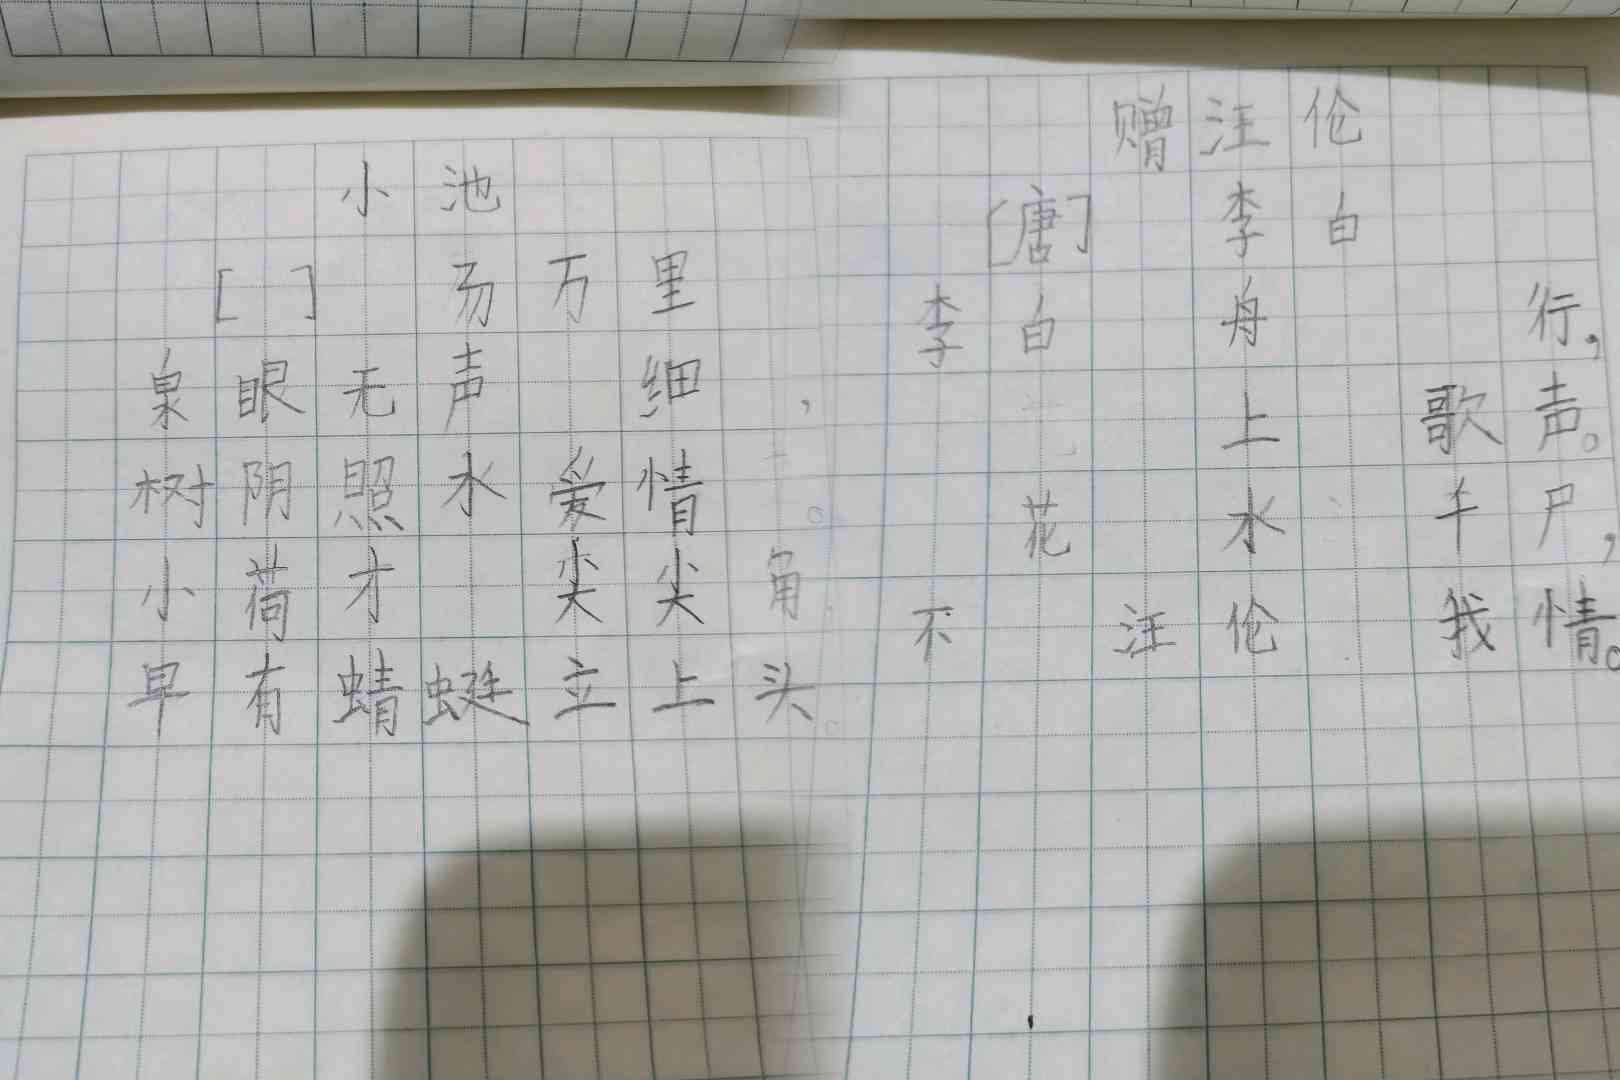 小池
[ ] 万里
泉眼无声 细,
树阴照水爱情。
小荷才 尖尖角
早有蜻蜓立上头。
赠汪伦
[唐] 李白
李白 舟 行,
上 歌声。
花 水 千尸,
不 汪伦 我情。